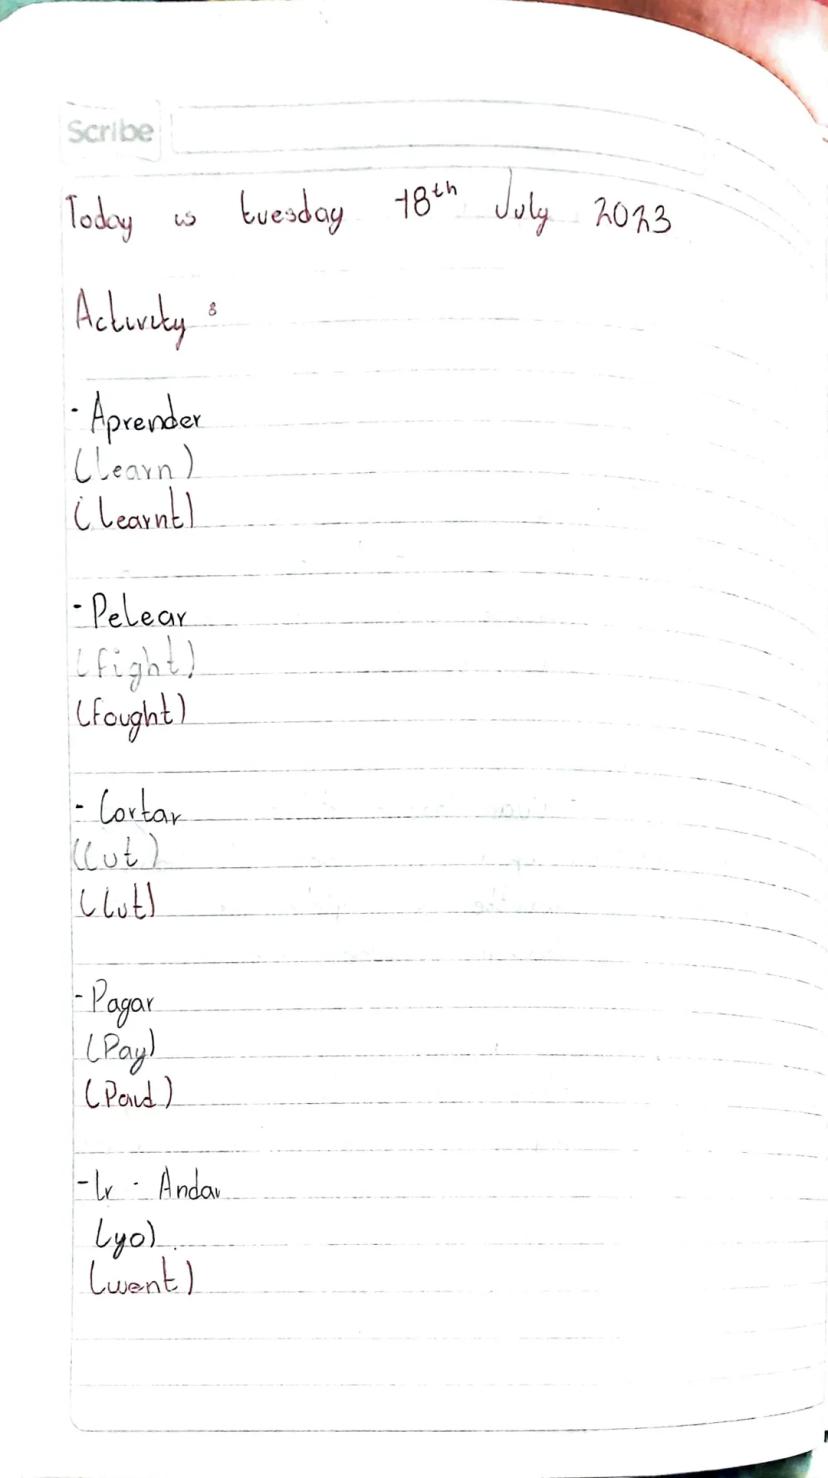 Scribe
Today is tuesday 18th July 2023
Activity:
- Aprender
(learn)
(learnt)
- Pelear
(fight)
(fought)
- Cortar
(Cut)
(Cut)
- Pagar
(Pay)
(Paid)
- Ir - Andar
(yo)
(went)